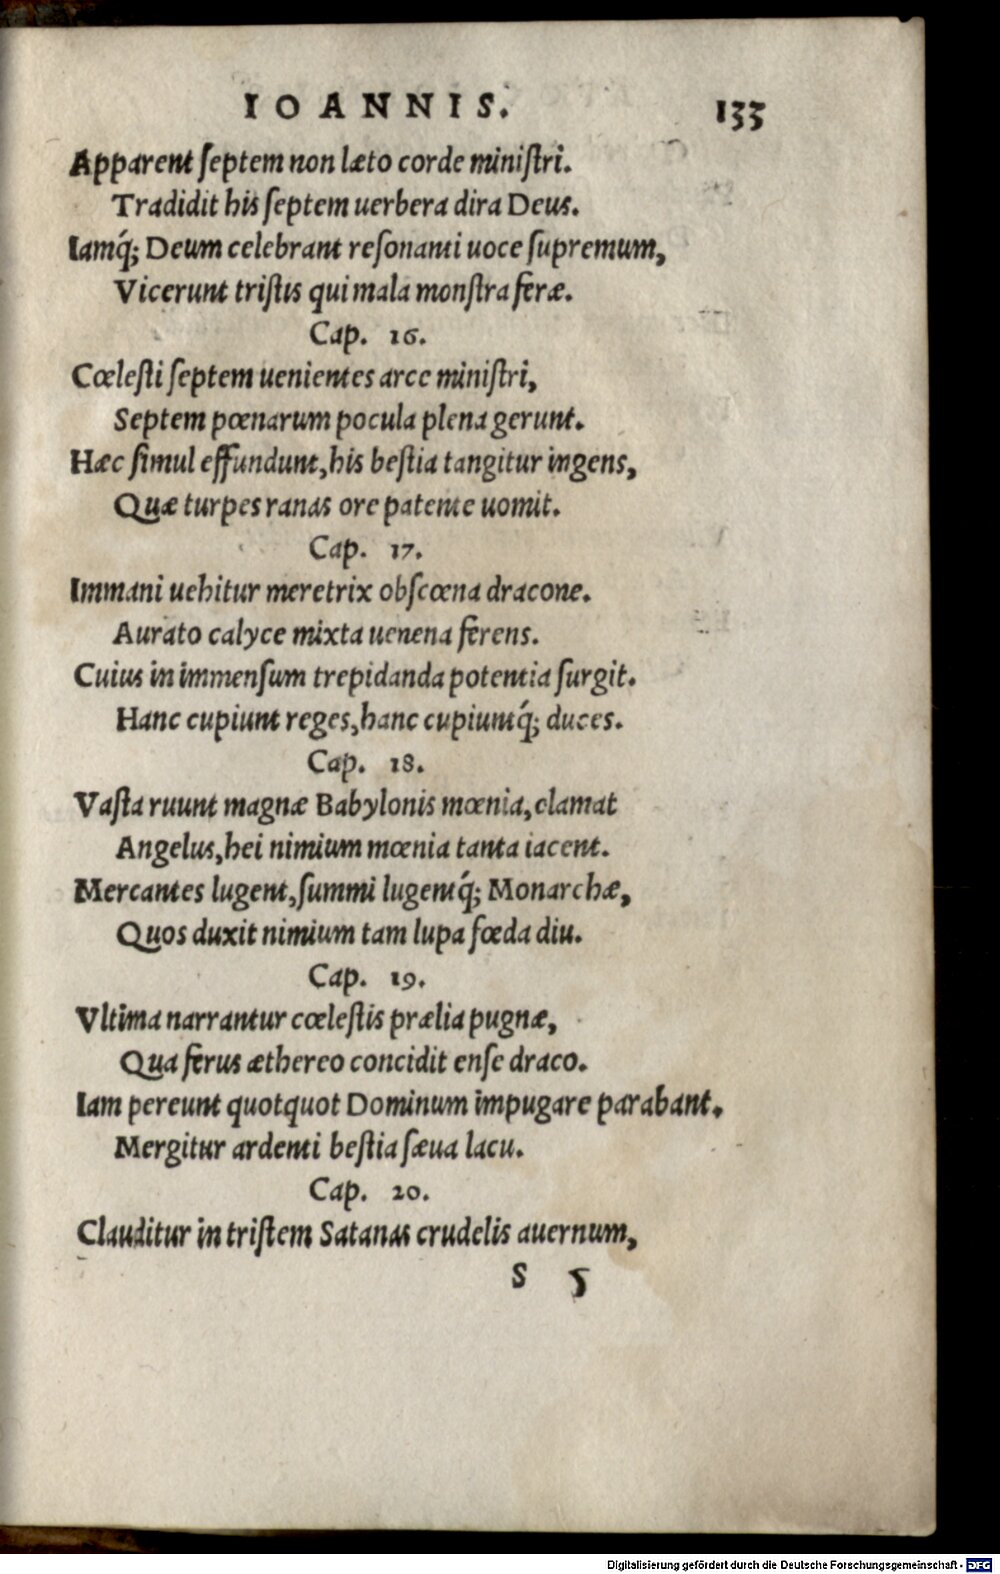 IOANNIS. 133
Apparent ſeptem non læto corde miniſtri.
Tradidit his ſeptem uerbera dira Deus.
Iamq́; Deum celebrant reſonanti uoce ſupremum,
Vicerunt triſtis qui mala monſtra feræ.
Cap. 16.
Cœleſti ſeptem uenientes arce miniſtri,
Septem pœnarum pocula plena gerunt.
Hæc ſimul effundunt, his beſtia tangitur ingens,
Quæ turpes ranas ore patente uomit.
Cap. 17.
Immani uehitur meretrix obſcœna dracone.
Aurato calyce mixta uenena ferens.
Cuius in immenſum trepidanda potentia ſurgit.
Hanc cupiunt reges, hanc cupiuntq́; duces.
Cap. 18.
Vaſta ruunt magnæ Babylonis mœnia, clamat
Angelus, hei nimium mœnia tanta iacent.
Mercantes lugent, ſummi lugentq́; Monarchæ,
Quos duxit nimium tam lupa fœda diu.
Cap. 19.
Vltima narrantur cœleſtis prælia pugnæ,
Qua ferus æthereo concidit enſe draco.
Iam pereunt quotquot Dominum impugare parabant.
Mergitur ardenti beſtia ſæua lacu.
Cap. 20.
Clauditur in triſtem Satanas crudelis auernum,
S 5
Digitalisierung gefördert durch die Deutsche Forschungsgemeinschaft - DFG